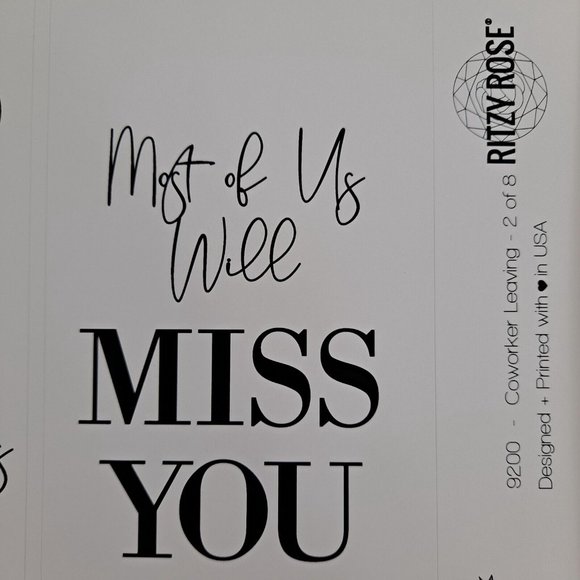 Most of Us
Will
MISS
YOU
RITZY ROSE®
9200 - Coworker Leaving - 2 of 8
Designed + Printed with ♥ in USA